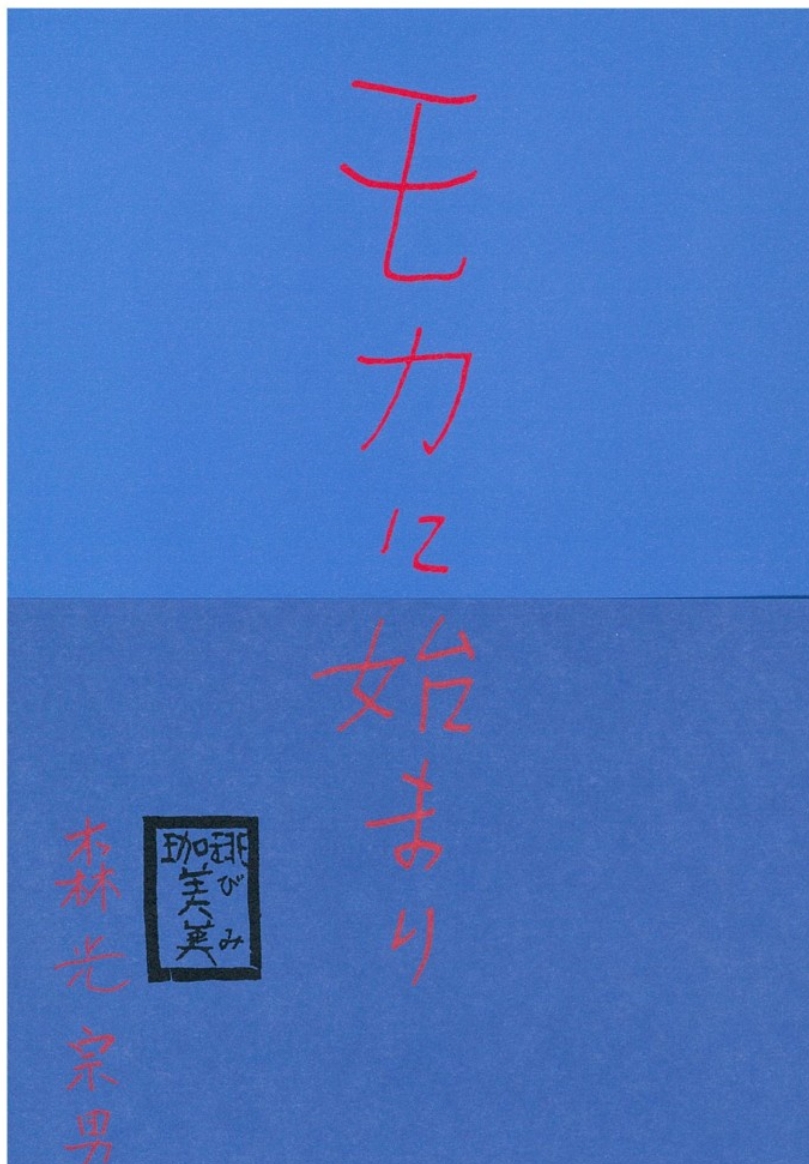 モカに始まり
珈琲
美美
びみ
森光宗男